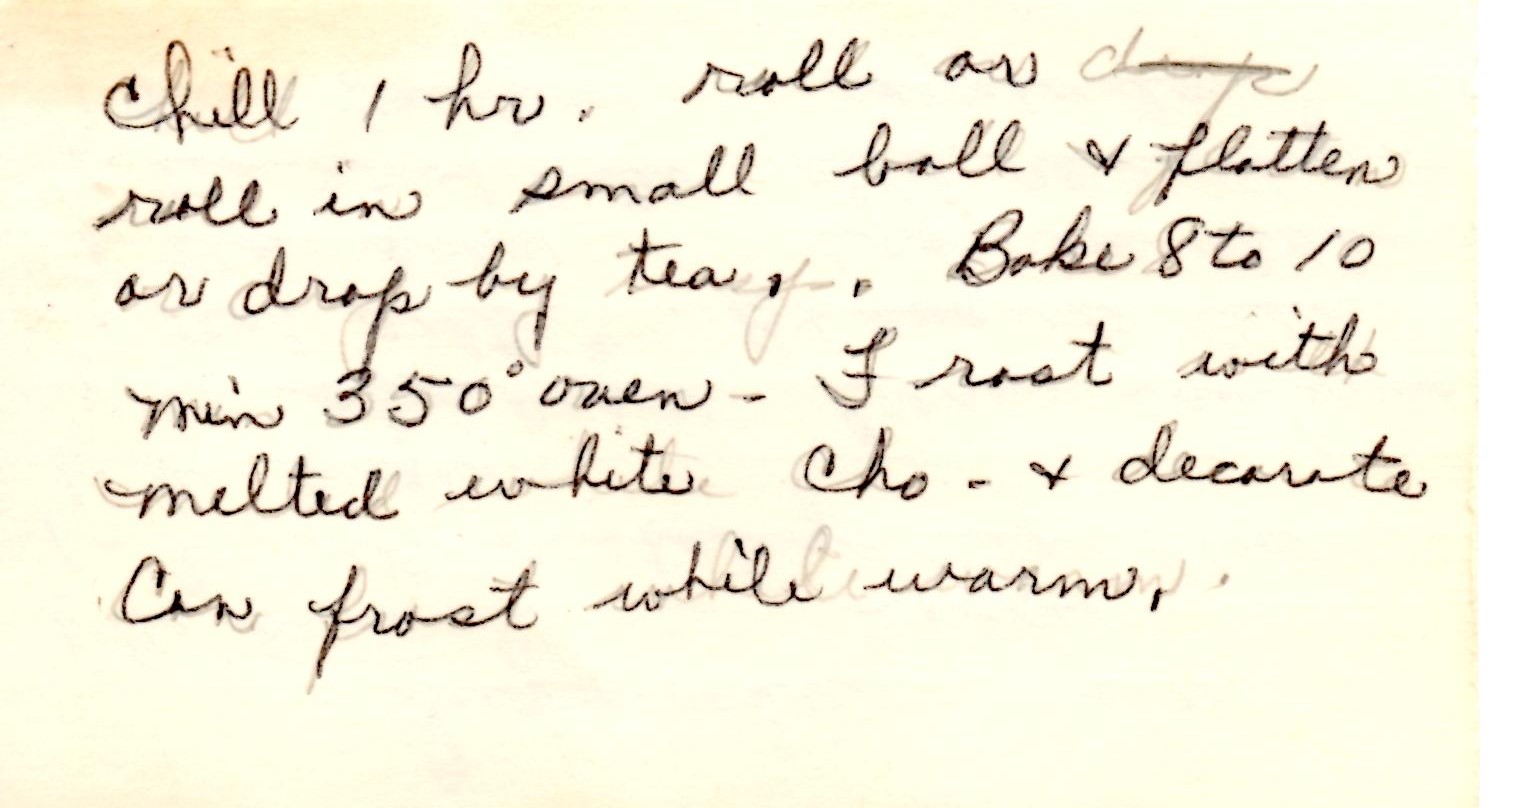 Chill 1 hr. roll or drop
roll in small ball & flatten
or drop by tea. . Bake 8 to 10
min 350° oven - Frost with
melted white Cho - & decorate
Can frost while warm.